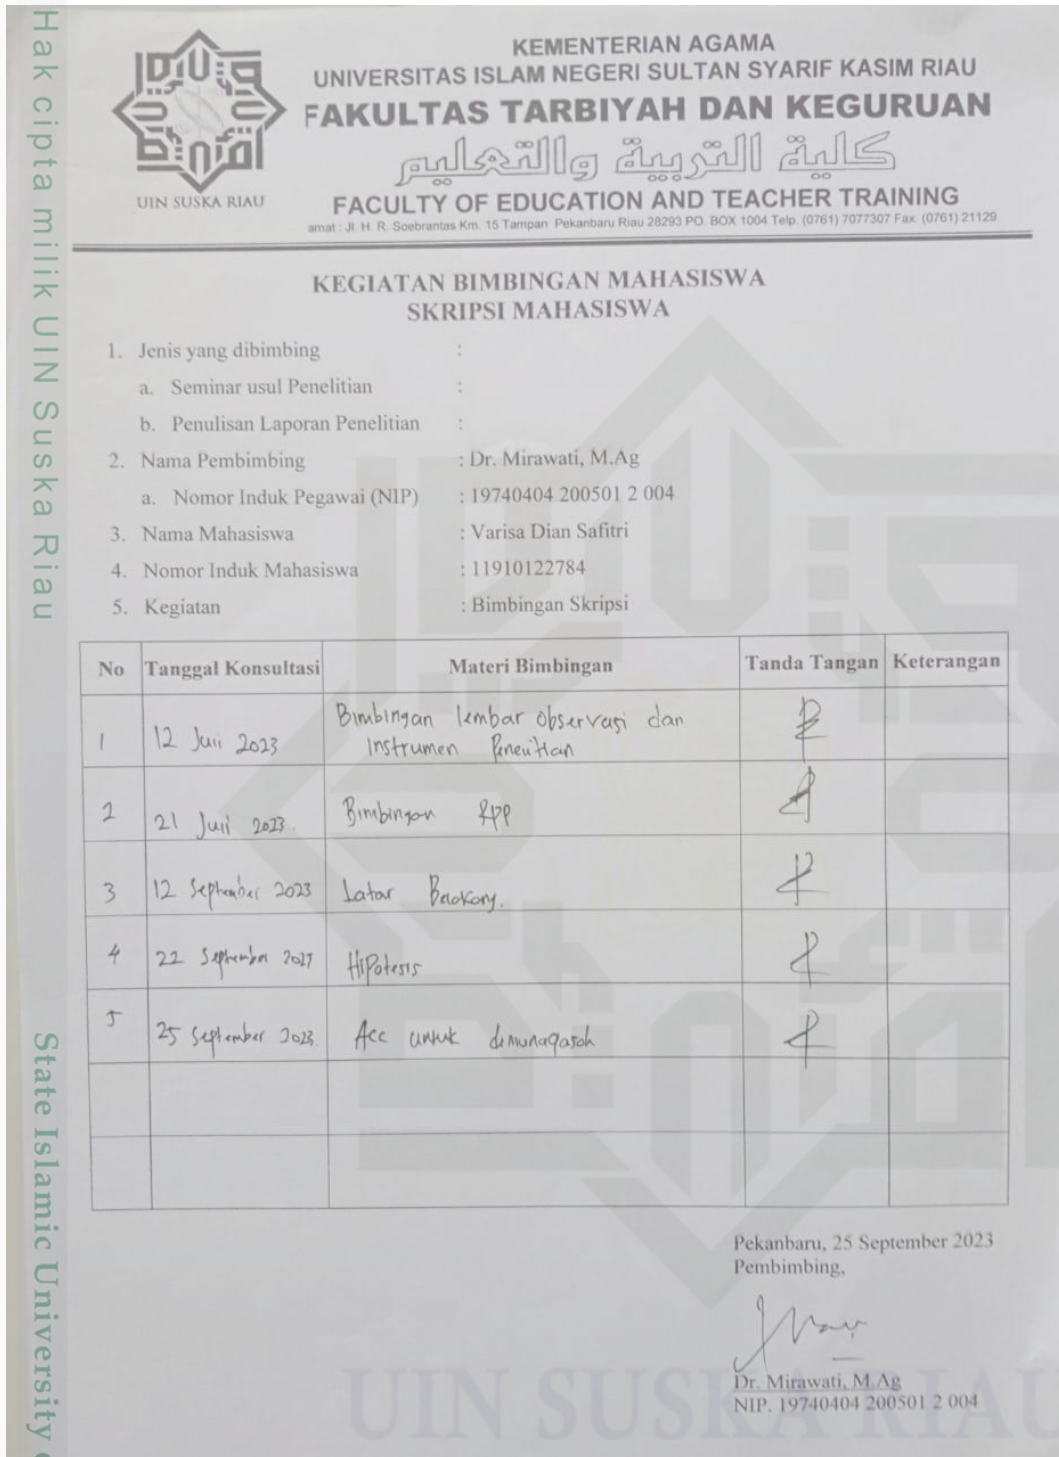 Hak cipta milik UIN Suska Riau
State Islamic University
UIN SUSKA RIAU
KEMENTERIAN AGAMA
UNIVERSITAS ISLAM NEGERI SULTAN SYARIF KASIM RIAU
FAKULTAS TARBIYAH DAN KEGURUAN
كلية التربية والتعليم
FACULTY OF EDUCATION AND TEACHER TRAINING
amat : Jl. H. R. Soebrantas Km. 15 Tampan Pekanbaru Riau 28293 PO. BOX 1004 Telp. (0761) 7077307 Fax. (0761) 21129
KEGIATAN BIMBINGAN MAHASISWA
SKRIPSI MAHASISWA
1. Jenis yang dibimbing :
a. Seminar usul Penelitian :
b. Penulisan Laporan Penelitian :
2. Nama Pembimbing : Dr. Mirawati, M.Ag
a. Nomor Induk Pegawai (NIP) : 19740404 200501 2 004
3. Nama Mahasiswa : Varisa Dian Safitri
4. Nomor Induk Mahasiswa : 11910122784
5. Kegiatan : Bimbingan Skripsi
No Tanggal Konsultasi Materi Bimbingan Tanda Tangan Keterangan
1 12 Juli 2023 Bimbingan lembar observasi dan
Instrumen Penelitian
2 21 Juli 2023. Bimbingan RPP
3 12 September 2023 Latar Belakang.
4 22 September Hipotesis
5 25 September 2023. Acc untuk dimunaqasah
Pekanbaru, 25 September 2023
Pembimbing,
Dr. Mirawati, M.Ag
NIP. 19740404 200501 2 004
UIN SUSKA RIAU